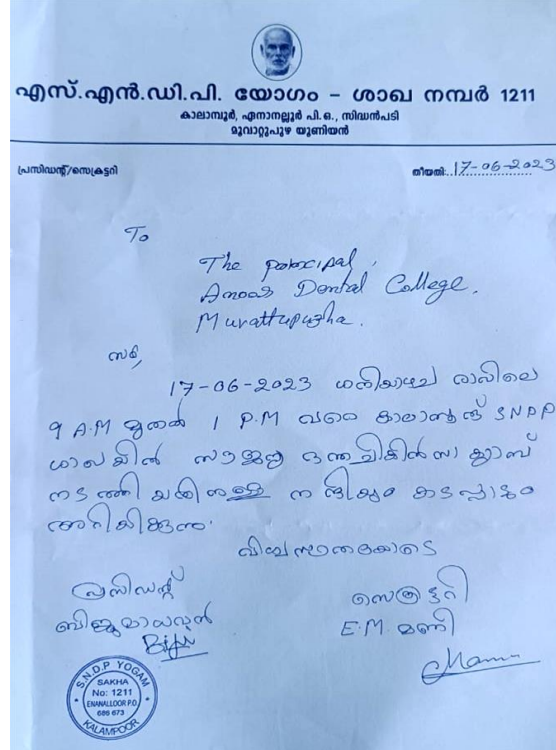 എസ്.എൻ.ഡി.പി. യോഗം - ശാഖ നമ്പർ 1211
കാലാമ്പൂർ, ഏനാനല്ലൂർ പി.ഒ., സിദ്ധൻപടി
മൂവാറ്റുപുഴ യൂണിയൻ
പ്രസിഡന്റ്/സെക്രട്ടറി
തീയതി: 17-06-2023
To
The principal,
Annoor Dental College,
Muvattupuzha.
സർ,
17-06-2023 ശനിയാഴ്ച രാവിലെ
9 A.M മുതൽ 1 P.M വരെ കാലാമ്പൂര് SNDP
ശാഖയിൽ സൗജന്യ ദന്തചികിൽസാ ക്യാമ്പ്
നടത്തിയതിനുള്ള നന്ദിയും കടപ്പാടും
അറിയിക്കുന്നു.
വിശ്വസ്തതയോടെ
പ്രസിഡന്റ്
ബിജുമാധവൻ
Biju
സെക്രട്ടറി
E.M. മണി
S.N.D.P YOGAM
SAKHA
No: 1211
ENANALLOOR P.O.
686 673
KALAMPOOR